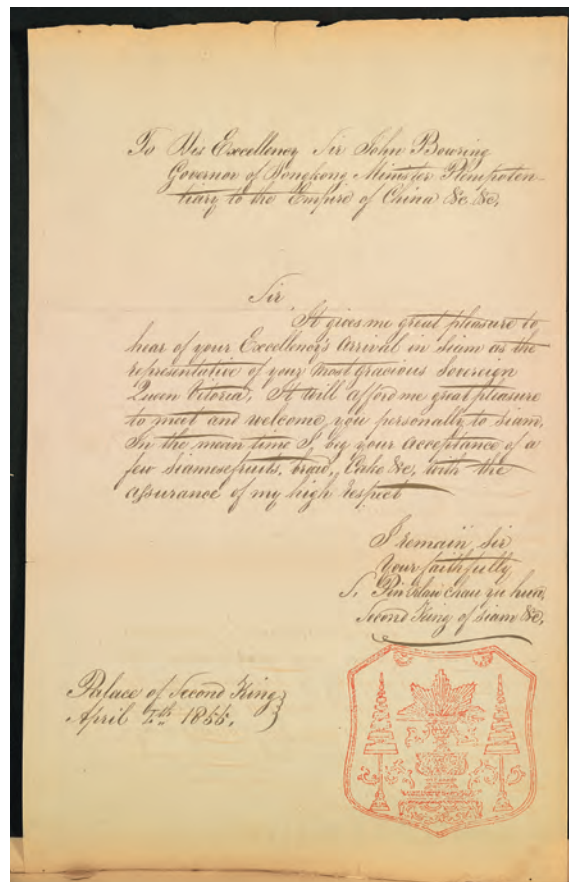 To His Excellency Sir John Bowring
Governor of Hongkong Minister Plenipoten-
tiary to the Empire of China &c &c,
Sir
It gives me great pleasure to
hear of your Excellency's Arrival in siam as the
representative of your most gracious Sovereign
Queen Vitorea, It will afford me great pleasure
to meet and welcome you personally to siam,
In the mean time I, beg your acceptance of a
few siamesefruits, bread, Cake &c, with the
assurance of my high respect
I remain sir
Your faithfully
S. Pin Klau chau yu hua,
Second King of siam &c,
Palace of Second King
April 1855.